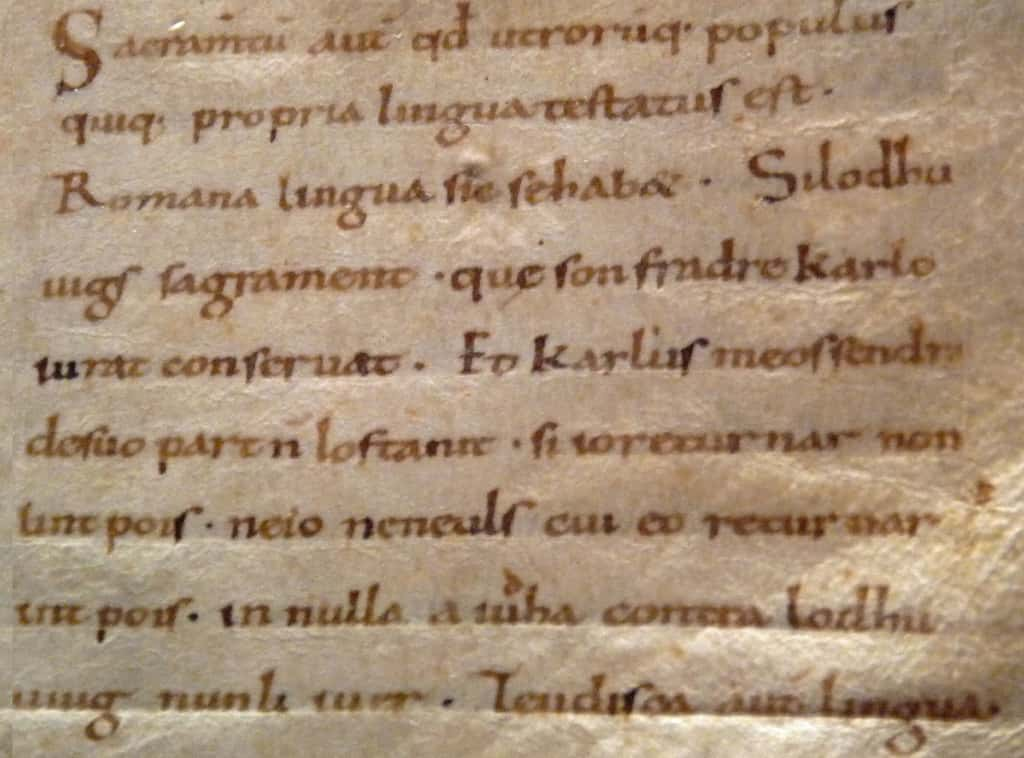 Sacramtū aut̄ qd̄ utrorūq; populus
quiq; propria lingua testatus est.
Romana lingua sic se habæ . Silodhu
uigs sagrament . quę son fradre Karlo
iurat conseruat . Et Karlus meossendra
desuo part n̄ lostanit . si ioreturnar non
lint pois . neio neneuls cui eo returnar
int pois . in nulla a iudha contra lodhu
uuig nunli iuer . Teudisca aut̄ lingua.